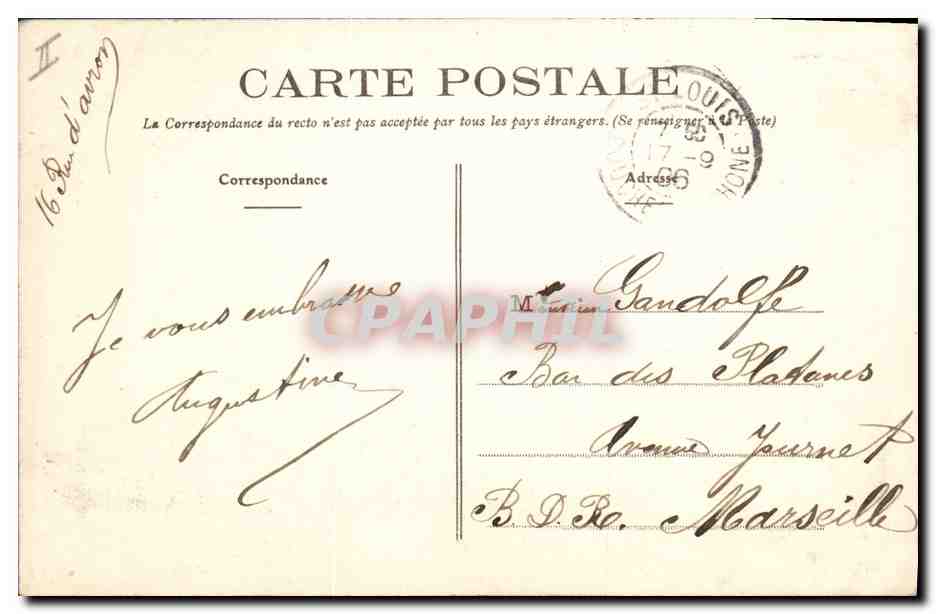 II
16 Rue d'avron
CARTE POSTALE
La Correspondance du recto n'est pas acceptée par tous les pays étrangers. (Se renseigner à la Poste)
Correspondance
Adresse
LOUIS
17 -9
06
BOUCHE
RHONE
Je vous embrasse
Augustine
M Gandolfe
Bar des Platanes
Avenue Journet
B. D. Ro. Marseille
CPAPHIL